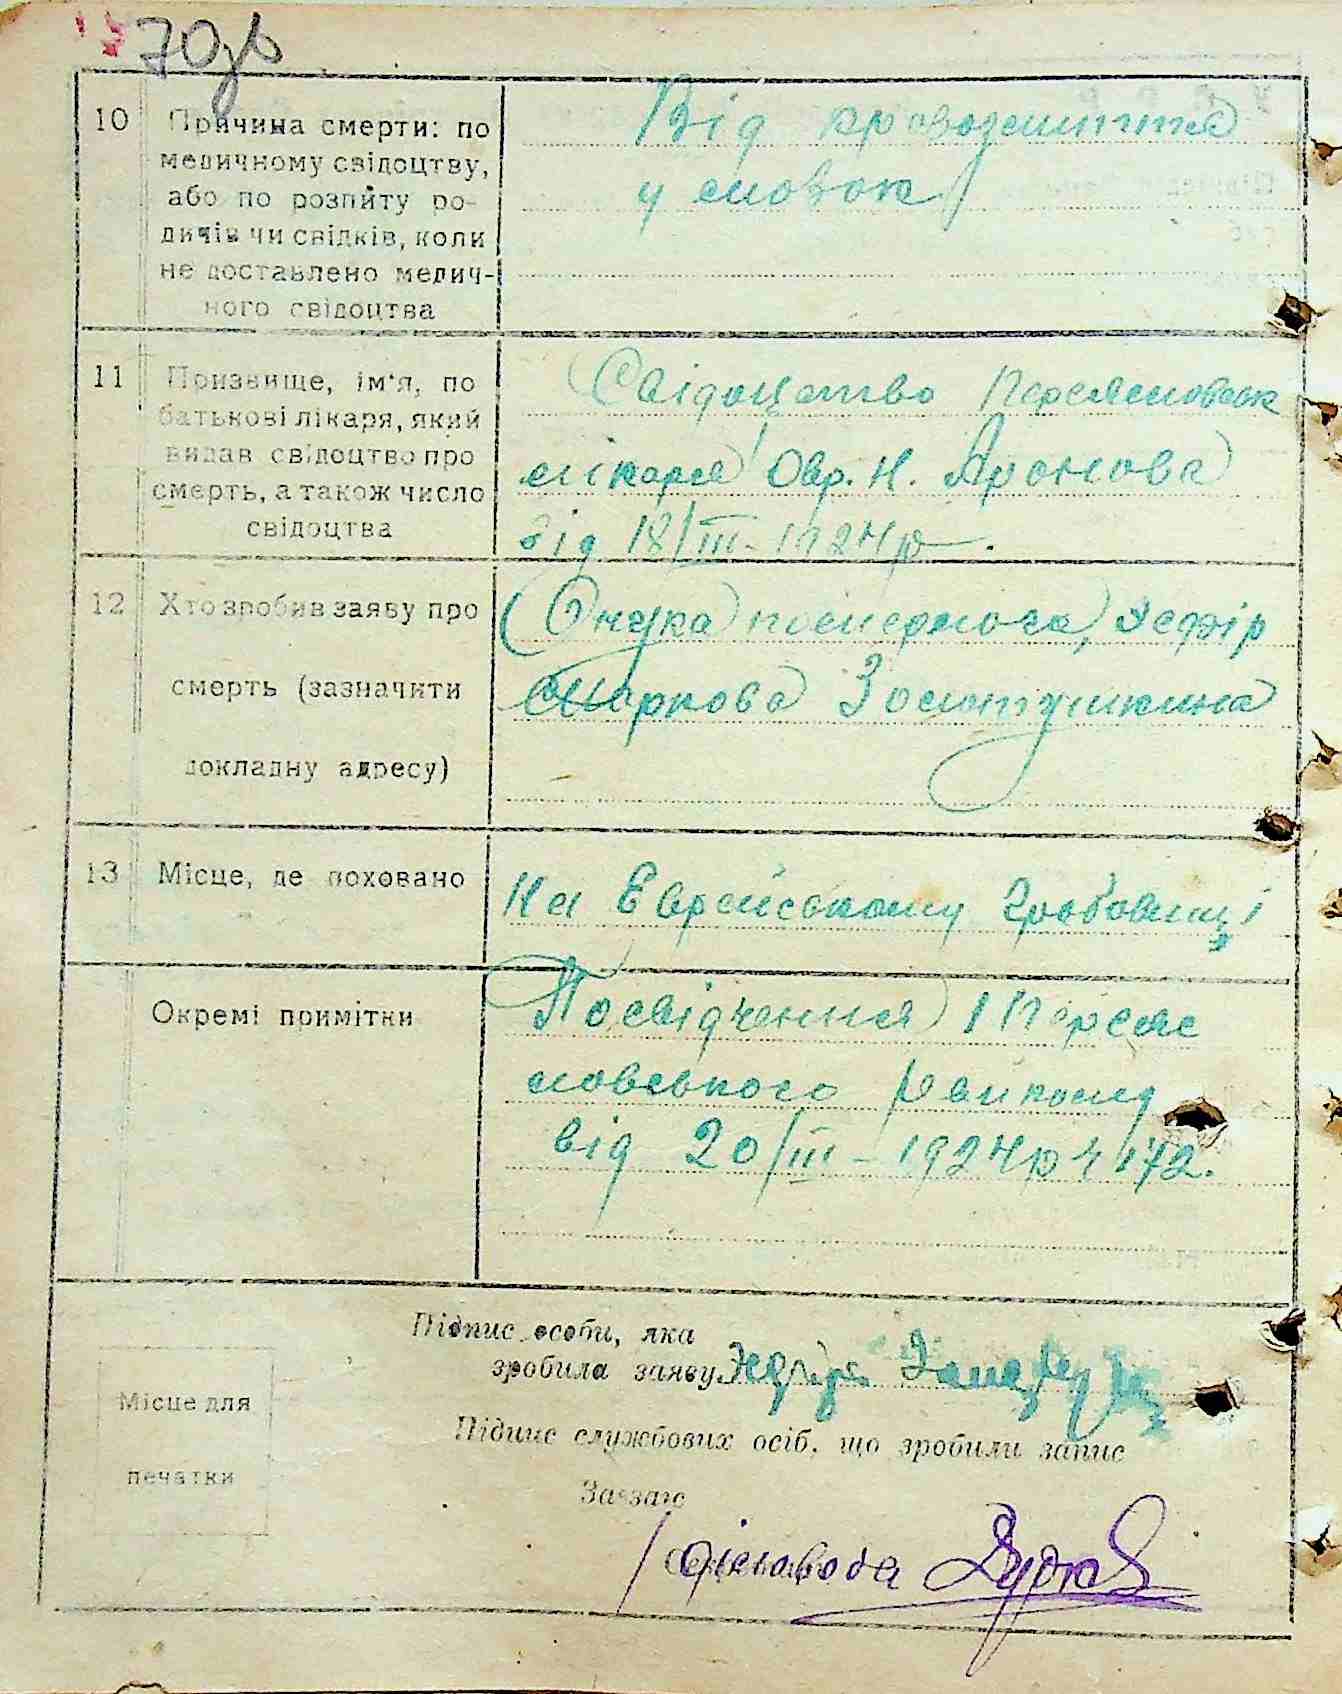 70зв
10 Причина смерти: по
медичному свідоцтву,
або по розпиту ро-
дичів чи свідків, коли
не доставлено медич-
ного свідоцтва
Від кровозлиття
у головок
11 Призвище, ім'я, по
батькові лікаря, який
видав свідоцтво про
смерть, а також число
свідоцтва
Свідоцтво Переяславськ
лікаря Овр. Н. Аронова
від 18/III - 1924р.
12 Хто зробив заяву про
смерть (зазначити
докладну адресу)
Онука посмертного, Эсфір
Маркова Золотушкина
13 Місце, де поховано
На Еврейському гробовищі
Окремі примітки
Посвідчення 1 Переяс
лавського Раймілід
від 20/III - 1924р ч 172.
Підпис особи, яка
зробила заяву
Місце для
печатки
Підпис службових осіб, що зробили запис
Завзагс
Діловода